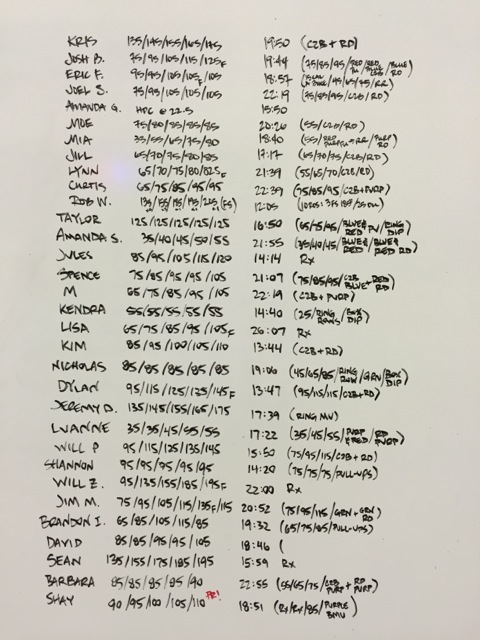 KRIS 135/145/155/165/175 19:50 (C2B + RD)
JOSH B. 75/95/105/115/125F 19:44 (75/85/95/
ERIC F. 95/95/105/105F/105 18:57 45/65/75/
JOEL S. 75/95/105/105/105 22:19 (75/85/95/C2B/RD)
AMANDA G. HPC @ 22.5 15:50
MOE 75/80/85/85/85 20:26 (55/C2B/RD)
MIA 33/55/65/75/80 18:40 (55/
JILL 65/70/75/80/85 17:17 (65/70/75/C2B/RD)
LYNN 65/70/75/80/82.5F 21:39 (55/65/70/C2B/RD)
CURTIS 65/75/85/95/95 22:39 (75/85/95/C2B+PURP)
ROB W. 12:05
TAYLOR 125/125/125/125/125 16:50 (65/75/95/BLUE& RED PU/RING DIP)
AMANDA S. 35/40/45/50/55 21:55 (35/40/45/BLUE& RED/BLUE& RED RD)
JULES 85/95/105/115/120 14:14 Rx
SPENCE 75/85/95/95/105 21:07 (75/85/95/C2B BLUE+RED RD)
M 65/75/85/95/105 22:19 (C2B + PURP)
KENDRA 55/55/55/55/55 14:40 (25/RING ROWS/BOX DIP)
LISA 65/75/85/95/105F 20:07 Rx
KIM 85/95/100/105/110 13:44 (C2B + RD)
NICHOLAS 85/85/85/85/85 19:06 (45/65/85/RING ROW/GRN/BOX DIP)
DYLAN 95/115/125/125/145F 13:47 (95/115/115/C2B+RD)
JEREMY D. 135/145/155/165/175 17:39 (RING MU)
LUANNE 35/35/45/55/55 17:22 (35/45/55/PURP &RED/RD PURP)
WILL P 95/115/125/135/145 15:50 (75/95/115/C2B + RD)
SHANNON 95/95/95/95/95 14:20 (75/75/75/PULL-UPS)
WILL Z. 95/135/155/185/195F 22:00 Rx
JIM M. 75/95/105/115/135F/115 20:52 (75/95/115/GRN+GRN RD)
BRANDON I. 65/85/105/115/85 19:32 (65/75/85/PULL-UPS)
DAVID 85/85/95/95/105 18:46 (
SEAN 135/155/175/185/195 15:59 Rx
BARBARA 85/85/85/85/90 22:55 (55/65/75/C2B PURP + RD PURP)
SHAY 90/95/100/105/110 PR! 18:51 (Rx/Rx/85/PURPLE BMU)